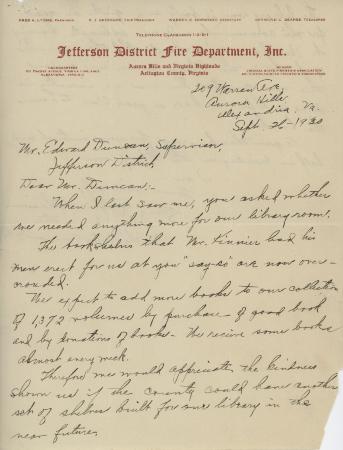 FRED A. LYONS, PRESIDENT
TELEPHONE CLARENDON
Jefferson District Fire Department, Inc.
Aurora Hills and Virginia Highlands
Arlington County, Virginia
HEADQUARTERS
209 Warren Ave,
Aurora Hills
Alexandria, Va.
Sept. 26-1930
Mr. Edward Duncan, Supervisor,
Jefferson District,
Dear Mr. Duncan:-
When I last saw me, you asked whether
we needed anything more for our library room.
The book shelves that Mr. Kinnier had his
men erect for us at you "say-so" are now over-
crowded.
We expect to add more books to our collection
of 1372 volumes by purchase of good book
and by donations of books - We receive some books
almost every week.
Therefore we would appreciate the kindness
shown us if the county could have another
set of shelves built for our library in the
near future.